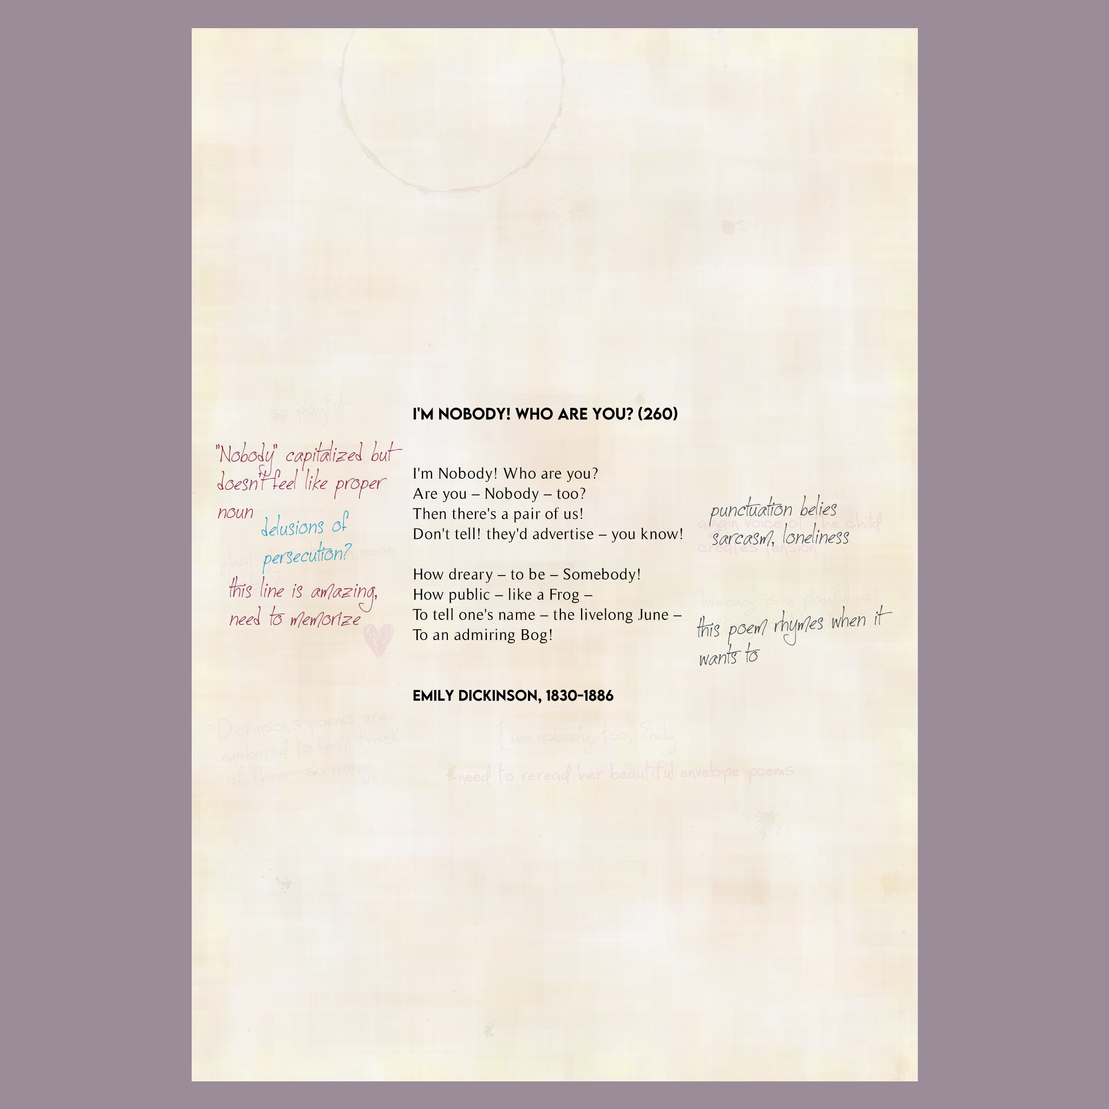 so playful
I'M NOBODY! WHO ARE YOU? (260)
"Nobody" capitalized but
doesn't feel like proper
noun
delusions of
persecution?
this line is amazing,
need to memorize
I'm Nobody! Who are you?
Are you – Nobody – too?
Then there's a pair of us!
Don't tell! they'd advertise – you know!
How dreary – to be – Somebody!
How public – like a Frog –
To tell one's name – the livelong June –
To an admiring Bog!
punctuation belies
sarcasm, loneliness
again voice of the child
creates tension
this poem rhymes when it
wants to
EMILY DICKINSON, 1830-1886
Dickinson's poems are
numbered to keep track
of them—so many
I am nobody, too, Emily
need to reread her beautiful envelope poems